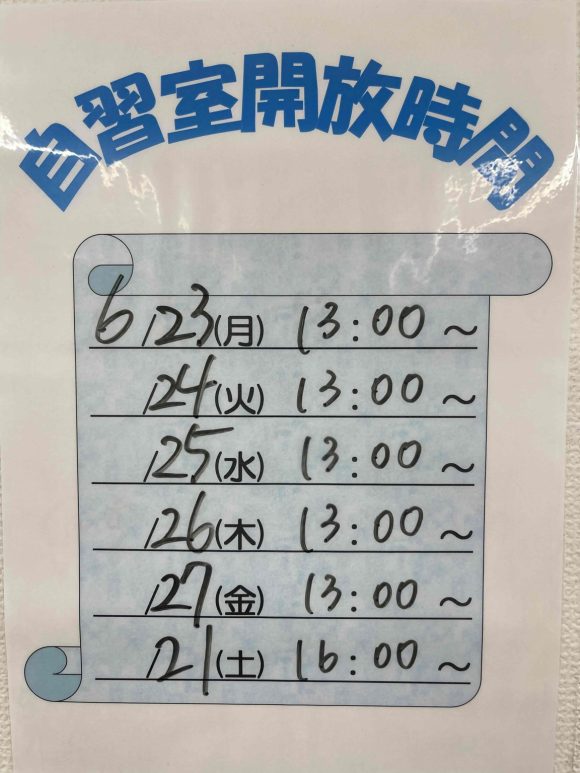 自習室開放時間
6/23(月) 13:00~
/24(火) 13:00~
/25(水) 13:00~
/26(木) 13:00~
/27(金) 13:00~
/21(土) 16:00~